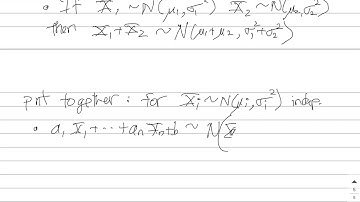 • If X₁ ~ N(μ₁, σ₁²) X₂ ~ N(μ₂, σ₂²)
then X₁+X₂ ~ N(μ₁+μ₂, σ₁²+σ₂²)
put together : for Xᵢ ~ N(μᵢ, σᵢ²) indep.
• a₁X₁+⋯+aₙXₙ+b ~ N(